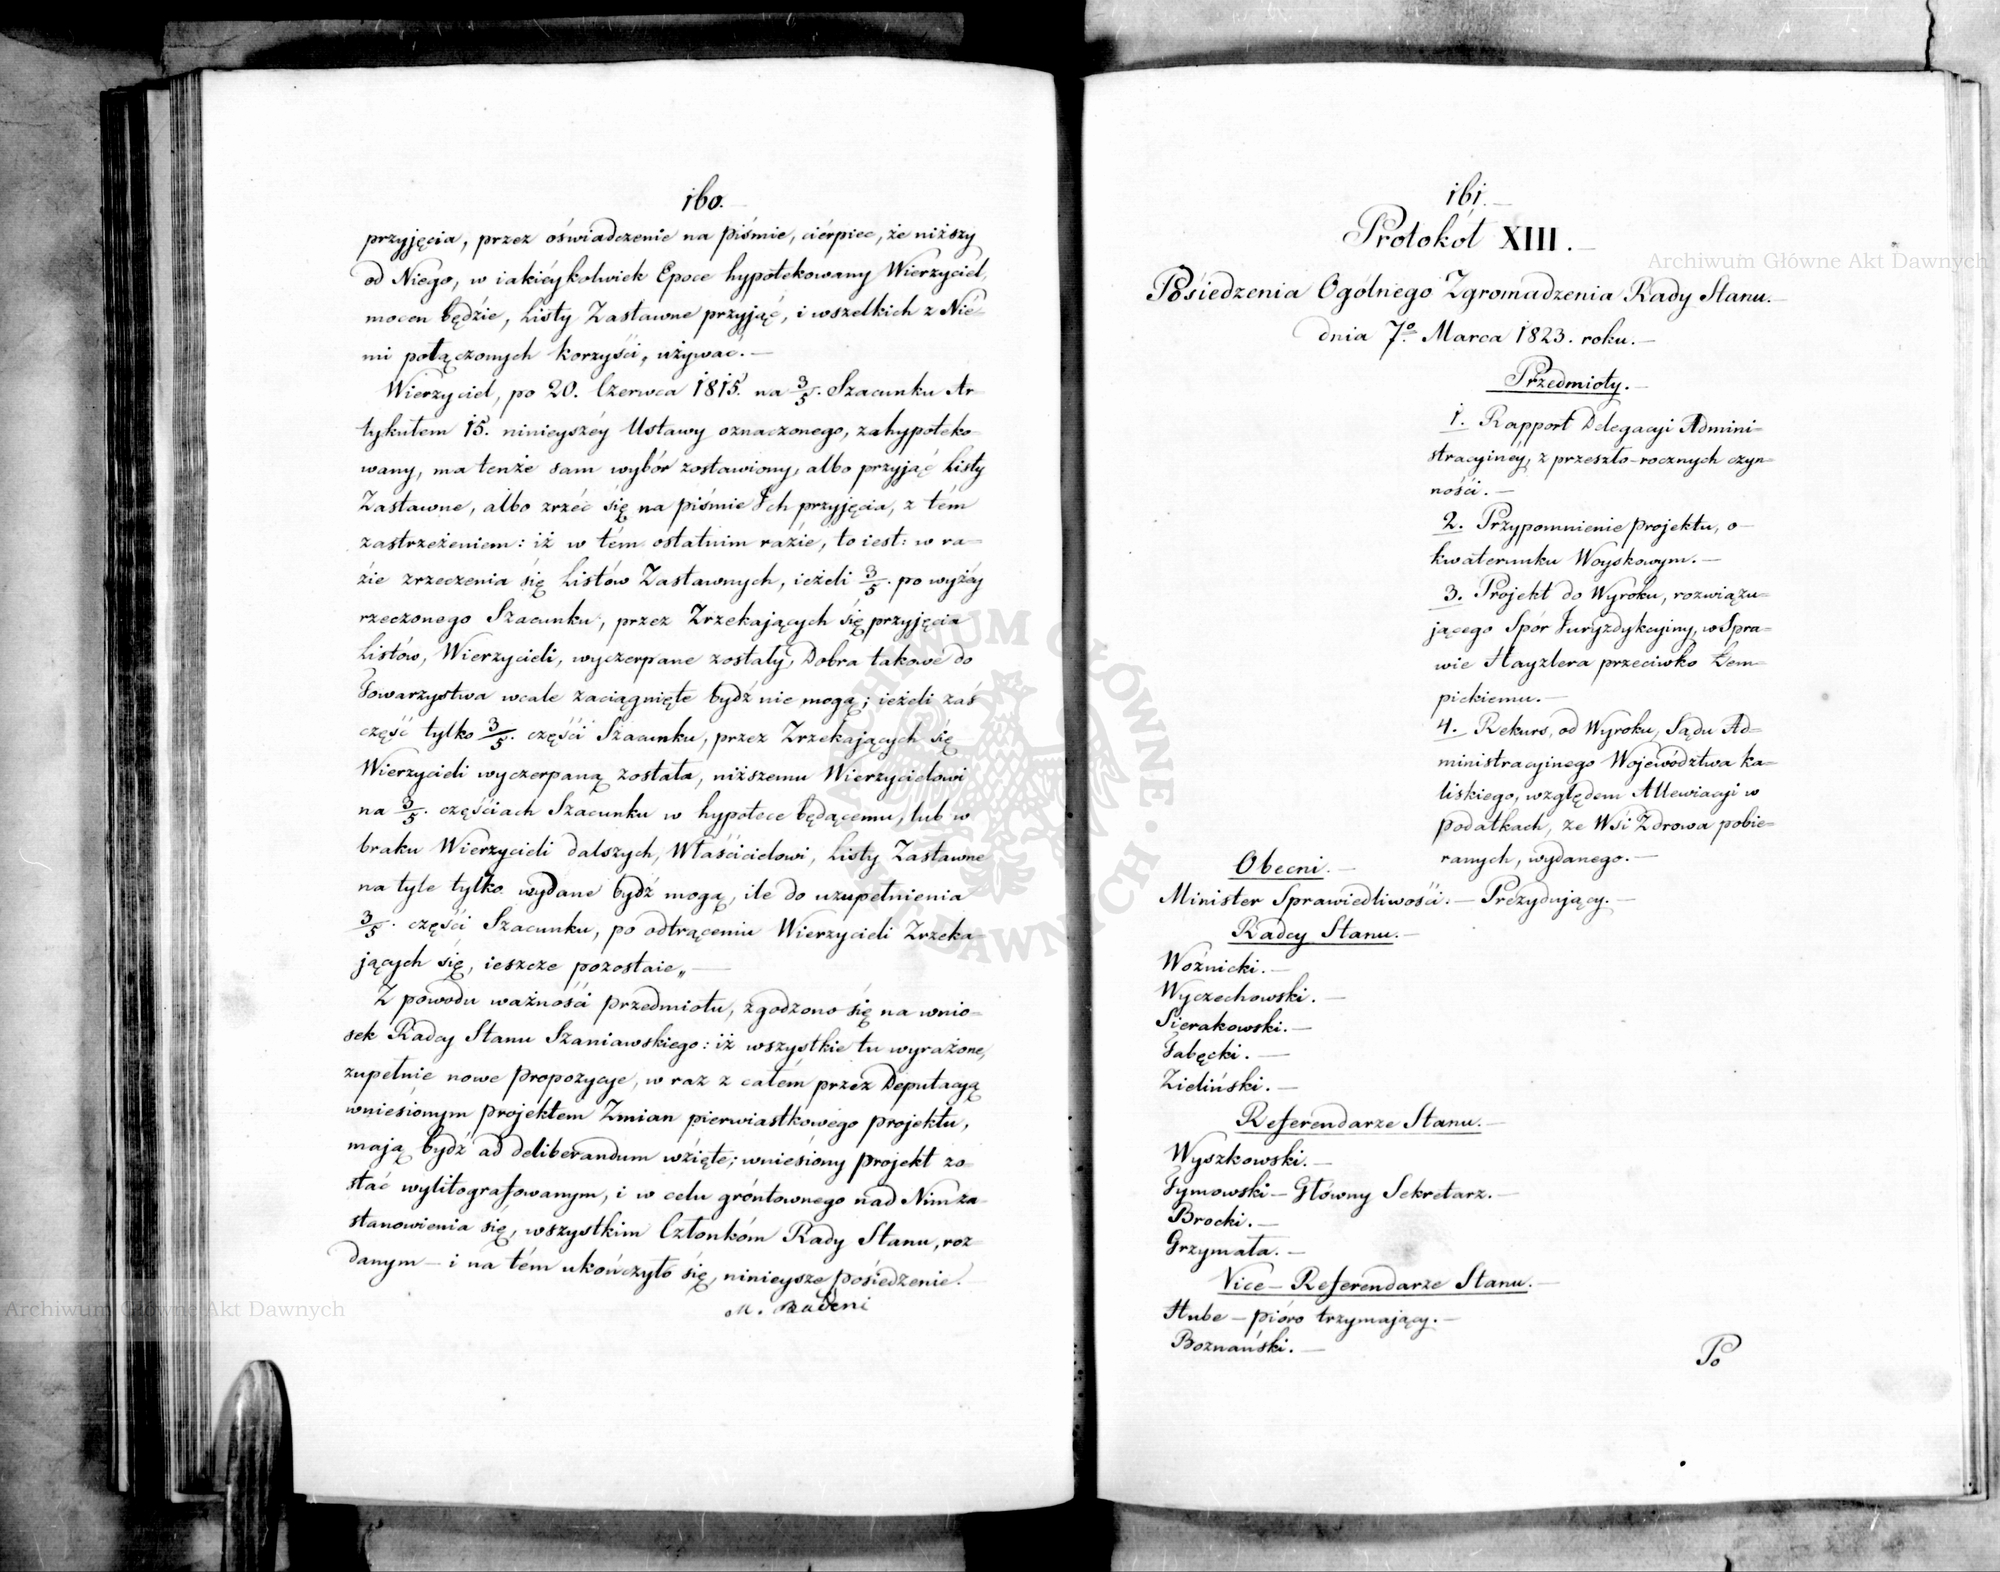 160.
przyjęcia, przez oświadczenie na piśmie, cierpiec, że niższy
od Niego, w iakiéykolwiek Epoce hypotekowany Wierzyciel,
mocen będzie, Listy Zastawne przyjąć, i wszelkich z Nie-
mi połączonych korzyści, używać. —
Wierzyciel, po 20. Czerwca 1815. na 3/5. Szacunku Ar-
tykułem 15. ninieyszéy Ustawy oznaczonego, zahypoteko-
wany, ma tenże sam wybór zostawiony, albo przyjąć Listy
Zastawne, albo zrzéc się na piśmie Ich przyjęcia, z tém
zastrzeżeniem: iż w tém ostatnim razie, to iest: w ra-
zie zrzeczenia się Listów Zastawnych, ieżeli 3/5. po wyżéy
rzeczonego Szacunku, przez Zrzekających się przyjęcia
Listów, Wierzycieli, wyczerpane zostały, Dobra takowe do
Towarzystwa wcale zaciągnięte bydź nie mogą; ieżeli zaś
część tylko 3/5. części Szacunku, przez Zrzekających się
Wierzycieli wyczerpaną została, niższemu Wierzycielowi
na 3/5. częściach Szacunku w hypotece będącemu, lub w
braku Wierzycieli dalszych, Właścicielowi, Listy Zastawne
na tyle tylko wydane bydź mogą, ile do uzupełnienia
3/5. części Szacunku, po odtrąceniu Wierzycieli Zrzeka-
jących się, ieszcze pozostaie„ —
Z powodu ważności przedmiotu, zgodzono się na wnio-
sek Radcy Stanu Szaniawskiego: iż wszystkie tu wyrażone,
zupełnie nowe propozycye, w raz z całém przez Deputacyą
wniesionym projektem Zmian pierwiastkowego projektu,
mają bydź ad deliberandum wzięte; wniesiony projekt zo-
stać wylitografowanym, i w celu gróntownego nad Nim za-
stanowienia się, wszystkim Członkóm Rady Stanu, roz-
danym — i na tém ukończyło się, ninieysze posiedzenie. —
M. Badeni
161. —
Protokół XIII. —
Posiedzenia Ogólnego Zgromadzenia Rady Stanu. —
dnia 7o. Marca 1823. roku. —
Przedmioty. —
1. Rapport Delegacyi Admini-
stracyinéy, z przeszło-rocznych czyn-
ności. —
2. Przypomnienie projektu, o-
kwaterunku Woyskowym. —
3. Projekt do Wyroku, rozwiązu-
jącego Spór Juryzdykcyiny, w Spra-
wie Hayzlera przeciwko Łem-
pickiemu. —
4. Rekurs, od Wyroku, Sądu Ad-
ministracyinego Województwa Ka-
liskiego, względem Allewiacyi w
podatkach, ze Wsi Zdrowa pobie-
ranych, wydanego. —
Obecni. —
Minister Sprawiedliwości. — Prezydujący. —
Radcy Stanu. —
Woźnicki. —
Wyczechowski. —
Sierakowski. —
Tabęcki. —
Zieliński. —
Referendarze Stanu. —
Wyszkowski. —
Tymowski — Główny Sekretarz. —
Brocki. —
Grzymała. —
Vice — Referendarze Stanu. —
Hube — pióro trzymający. —
Boznański. —
Po
Archiwum Główne Akt Dawnych
Archiwum Główne Akt Dawnych
ARCHIWUM GŁÓWNE · AKT DAWNYCH ·